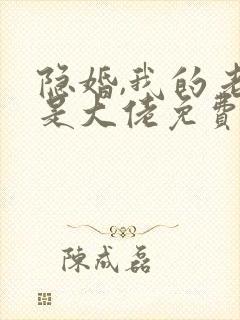 隐婚,我的老
是大佬免费
陈成磊